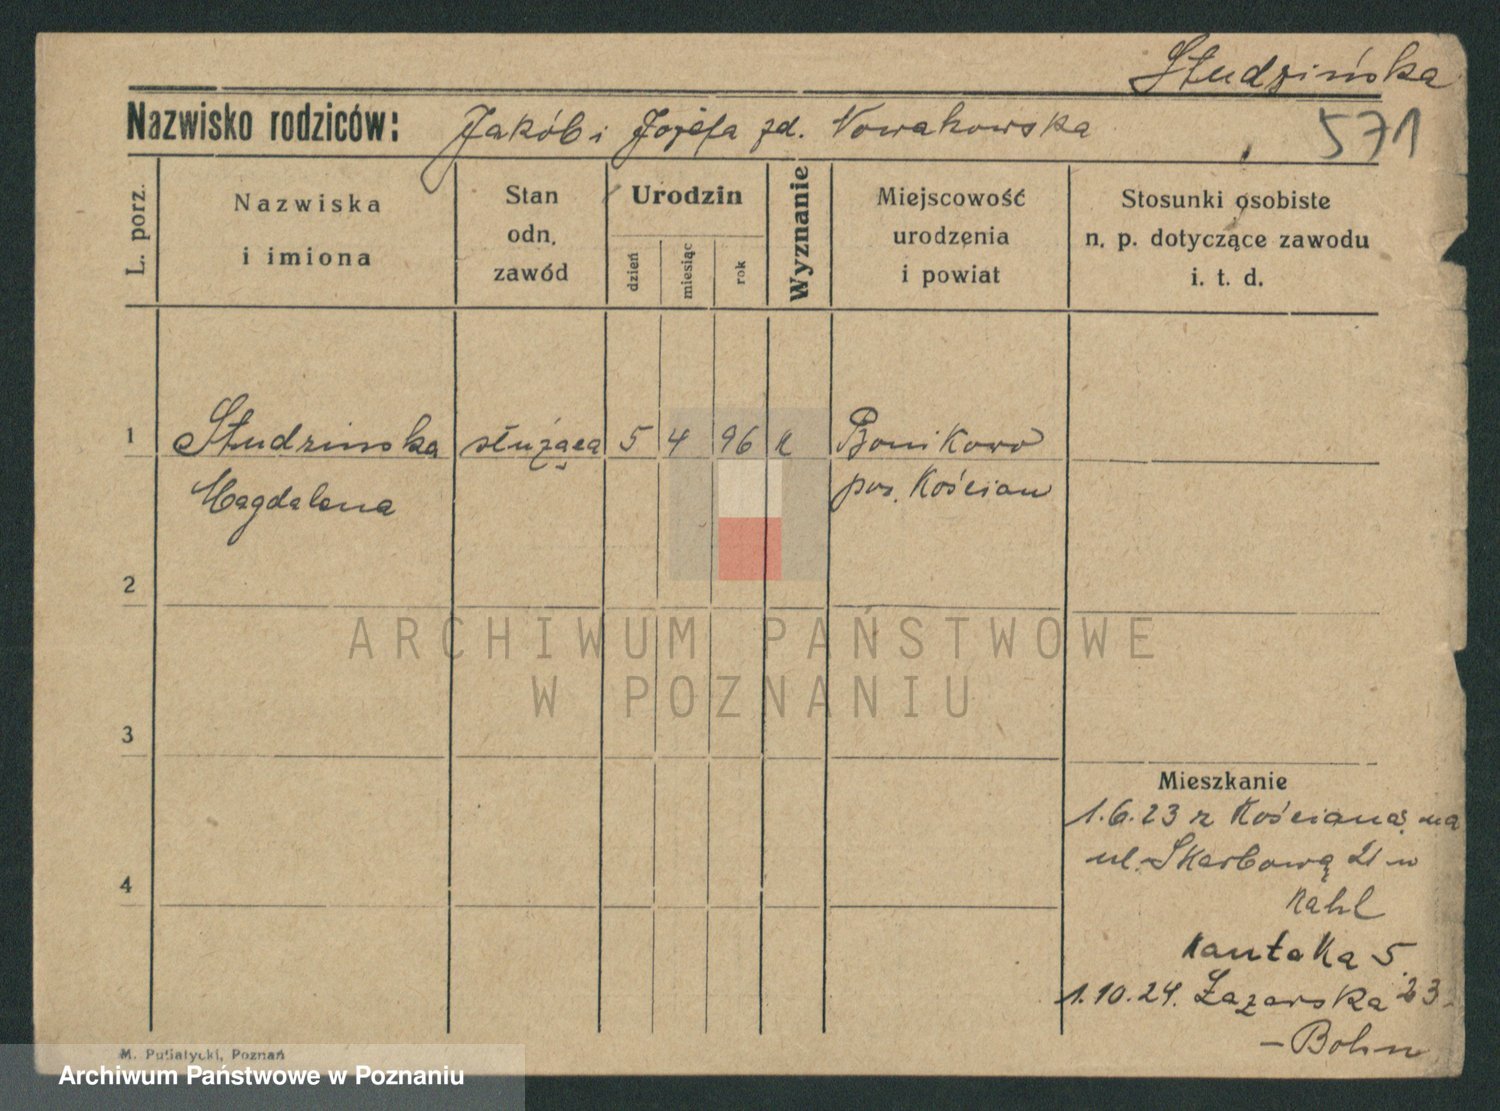 Studzińska
Nazwisko rodziców: Jakób i Józefa zd. Nowakowska
571
L. porz.
Nazwiska
i imiona
Stan
odn.
zawód
Urodzin
dzień
miesiąc
rok
Wyznanie
Miejscowość
urodzenia
i powiat
Stosunki osobiste
n. p. dotyczące zawodu
i. t. d.
1 Studzinska służąca 5 4 96 k Bonikowo
Magdalena pow. Kościan
2
3
4
Mieszkanie
1.6.23 z Kościana na
ul. Skarbową 21 u
Kahl
Kantaka 5.
1.10.24. Łazarska 23
- Bohn
ARCHIWUM PAŃSTWOWE
W POZNANIU
M. Putiatycki, Poznań
Archiwum Państwowe w Poznaniu